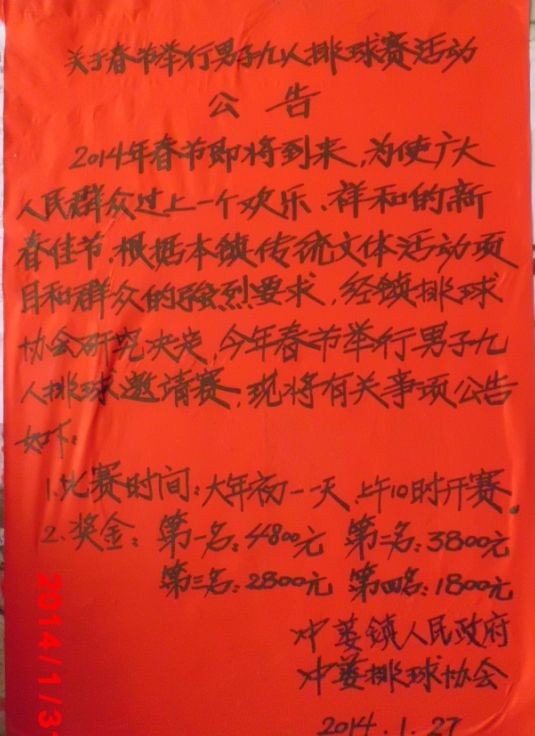 关于春节举行男子九人排球赛活动
公告
2014年春节即将到来，为使广大
人民群众过上一个欢乐、祥和的新
春佳节，根据本镇传统文体活动项
目和群众的强烈要求，经镇排球
协会研究决定，今年春节举行男子九
人排球邀请赛，现将有关事项公告
如下：
1.比赛时间：大年初一一天，上午10时开赛。
2.奖金：第一名：4800元 第二名：3800元
第三名：2800元 第四名：1800元
冲蒌镇人民政府
冲蒌排球协会
2014.1.27
2014/1/31